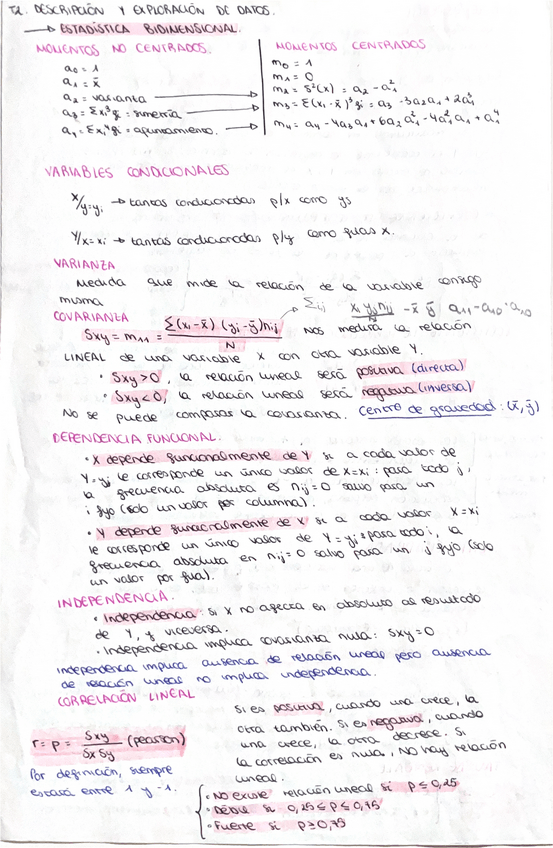 T2. DESCRIPCIÓN Y EXPLORACIÓN DE DATOS.
→ ESTADÍSTICA BIDIMENSIONAL.
MOMENTOS NO CENTRADOS.
a₀ = 1
a₁ = x̄
a₂ = varianza
a₃ = Σxᵢ³fᵢ = simetría
a₄ = Σxᵢ⁴fᵢ = apuntamiento.
MOMENTOS CENTRADOS
m₀ = 1
m₁ = 0
m₂ = S²(x) = a₂ - a₁²
m₃ = Σ(xᵢ - x̄)³fᵢ = a₃ - 3a₂a₁ + 2a₁³
m₄ = a₄ - 4a₃a₁ + 6a₂a₁² - 4a₁²a₁ + a₁⁴
VARIABLES CONDICIONALES
X/y=yⱼ → tantas condicionadas p/x como ys
Y/x=xᵢ → tantas condicionadas p/y como filas x.
VARIANZA
Medida que mide la relación de la variable consigo
misma
COVARIANZA
Sxy = m₁₁ = Σ(xᵢ - x̄)(yⱼ - ȳ)nᵢⱼ / N → Σᵢⱼ xᵢ yⱼ nᵢⱼ / N - x̄ ȳ a₁₁ - a₁₀ · a₁₀
Nos medirá la relación
LINEAL de una variable X con otra variable Y.
• Sxy > 0, la relación lineal será positiva (directa)
• Sxy < 0, la relación lineal será negativa (inversa)
No se puede comparar la covarianza. Centro de gravedad: (x̄, ȳ)
DEPENDENCIA FUNCIONAL.
• X depende funcionalmente de Y si a cada valor de
Y = yⱼ le corresponde un único valor de x = xᵢ : para todo j,
la frecuencia absoluta es nᵢⱼ = 0 salvo para un
i fijo (solo un valor por columna).
• Y depende funcionalmente de X si a cada valor X = xᵢ
le corresponde un único valor de Y = yⱼ : para todo i, la
frecuencia absoluta en nᵢⱼ = 0 salvo para un j fijo (solo
un valor por fila).
INDEPENDENCIA.
• Independencia: si X no afecta en absoluto al resultado
de Y, y viceversa.
• Independencia implica covarianza nula: Sxy = 0
Independencia implica ausencia de relación lineal pero ausencia
de relación lineal no implica independencia.
CORRELACIÓN LINEAL
r = ρ = Sxy / Sx Sy (pearson)
Por definición, siempre
estará entre 1 y -1.
Si es positiva, cuando una crece, la
otra también. Si es negativa, cuando
una crece, la otra decrece. Si
la correlación es nula, No hay relación
lineal.
• No existe relación lineal si ρ ≤ 0,25
• Débil si 0,25 ≤ ρ ≤ 0,75
• Fuerte si ρ ≥ 0,75